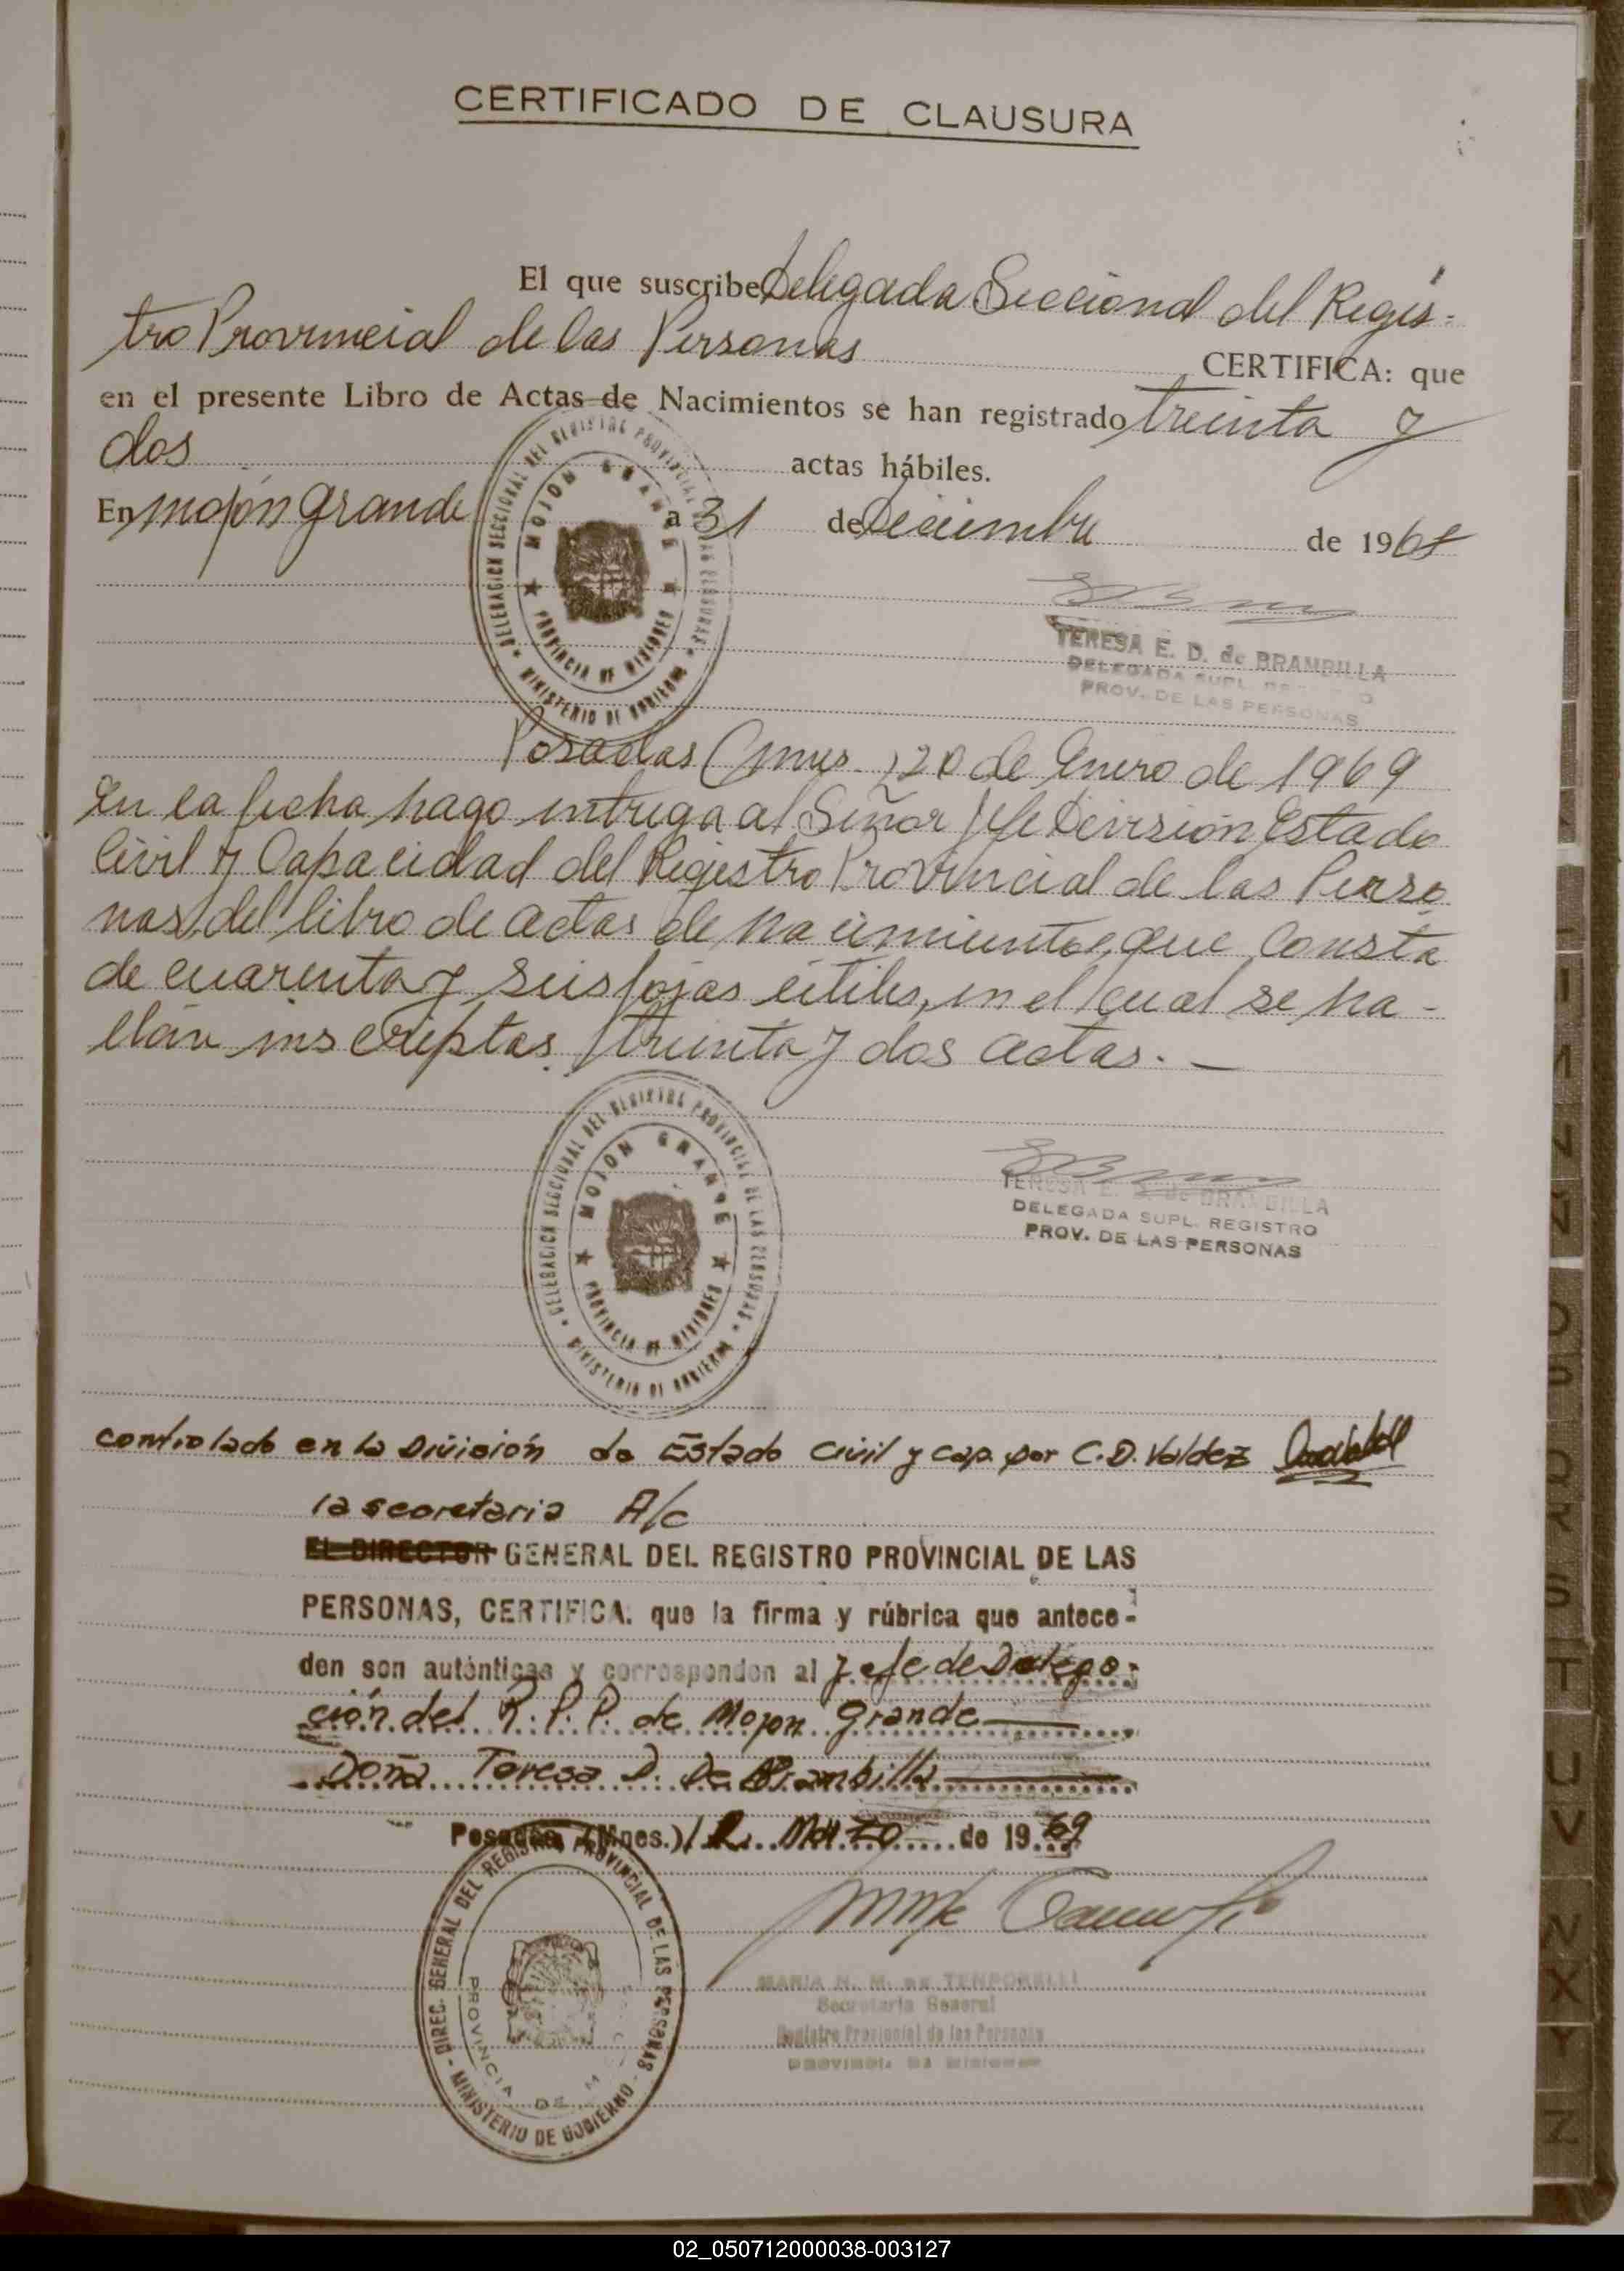 CERTIFICADO DE CLAUSURA
El que suscribe Delegada Seccional del Regis-
tro Provincial de las Personas CERTIFICA: que
en el presente Libro de Actas de Nacimientos se han registrado treinta y
dos actas hábiles.
En Mojón Grande a 31 de Diciembre de 1968
DELEGACION SECCIONAL DEL REGISTRO PROVINCIAL DE LAS PERSONAS
MOJON GRANDE
PROVINCIA DE MISIONES
MINISTERIO DE GOBIERNO
TERESA E. D. de BRAMBILLA
DELEGADA SUPL. REGISTRO
PROV. DE LAS PERSONAS
Posadas (Mnes.) 20 de Enero de 1969
En la fecha hago entrega al Señor Jefe División Estado
Civil y Capacidad del Registro Provincial de las Perso
nas, del libro de actas de nacimientos, que consta
de cuarenta y seis fojas útiles, en el cual se ha-
llan inscriptas treinta y dos actas.-
DELEGACION SECCIONAL DEL REGISTRO PROVINCIAL DE LAS PERSONAS
MOJON GRANDE
PROVINCIA DE MISIONES
MINISTERIO DE GOBIERNO
TERESA E. D. de BRAMBILLA
DELEGADA SUPL. REGISTRO
PROV. DE LAS PERSONAS
controlado en la División de Estado Civil y Cap. por C.D. Valdez
la secretaria A/c
EL DIRECTOR GENERAL DEL REGISTRO PROVINCIAL DE LAS
PERSONAS, CERTIFICA: que la firma y rúbrica que antece-
den son auténticas y corresponden al Jefe de Delega-
ción del R.P.P. de Mojon Grande
Doña Teresa D. De Brambilla
Posadas, (Mnes.) 12 Marzo de 1969
DIREC. GENERAL DEL REGISTRO PROVINCIAL DE LAS PERSONAS
PROVINCIA DE M
MINISTERIO DE GOBIERNO
MARIA N. M. DE TEMPORELLI
Secretaria General
Registro Provincial de las Personas
PROVINCIA DE MISIONES
O
P
Q
R
S
T
U
V
W
X
Y
Z
02_050712000038-003127